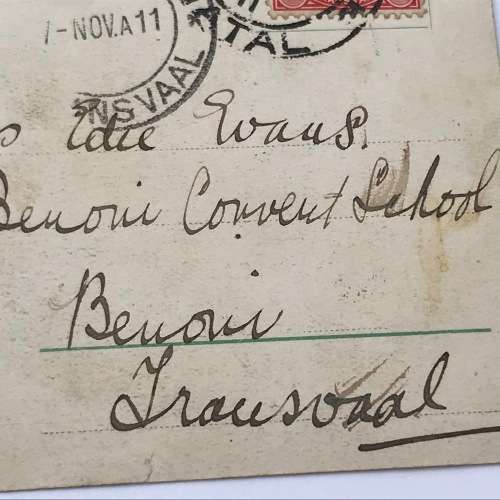 7-NOV.A11
NSVAAL
TAL
Edie Evans.
Benoni Convent School
Benoni
Transvaal